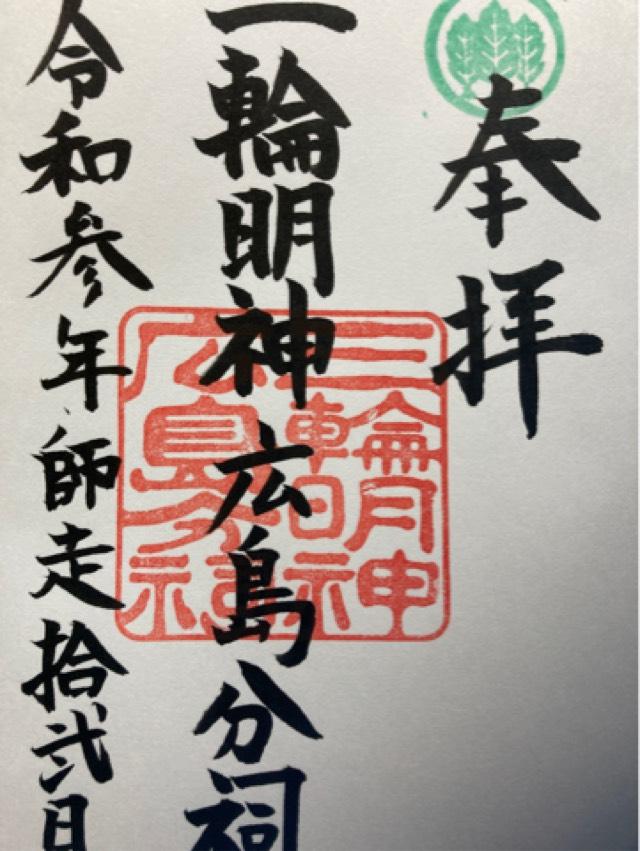 奉拝
三輪明神広島分祠
令和参年師走拾弐日
三輪明神
広島分祠